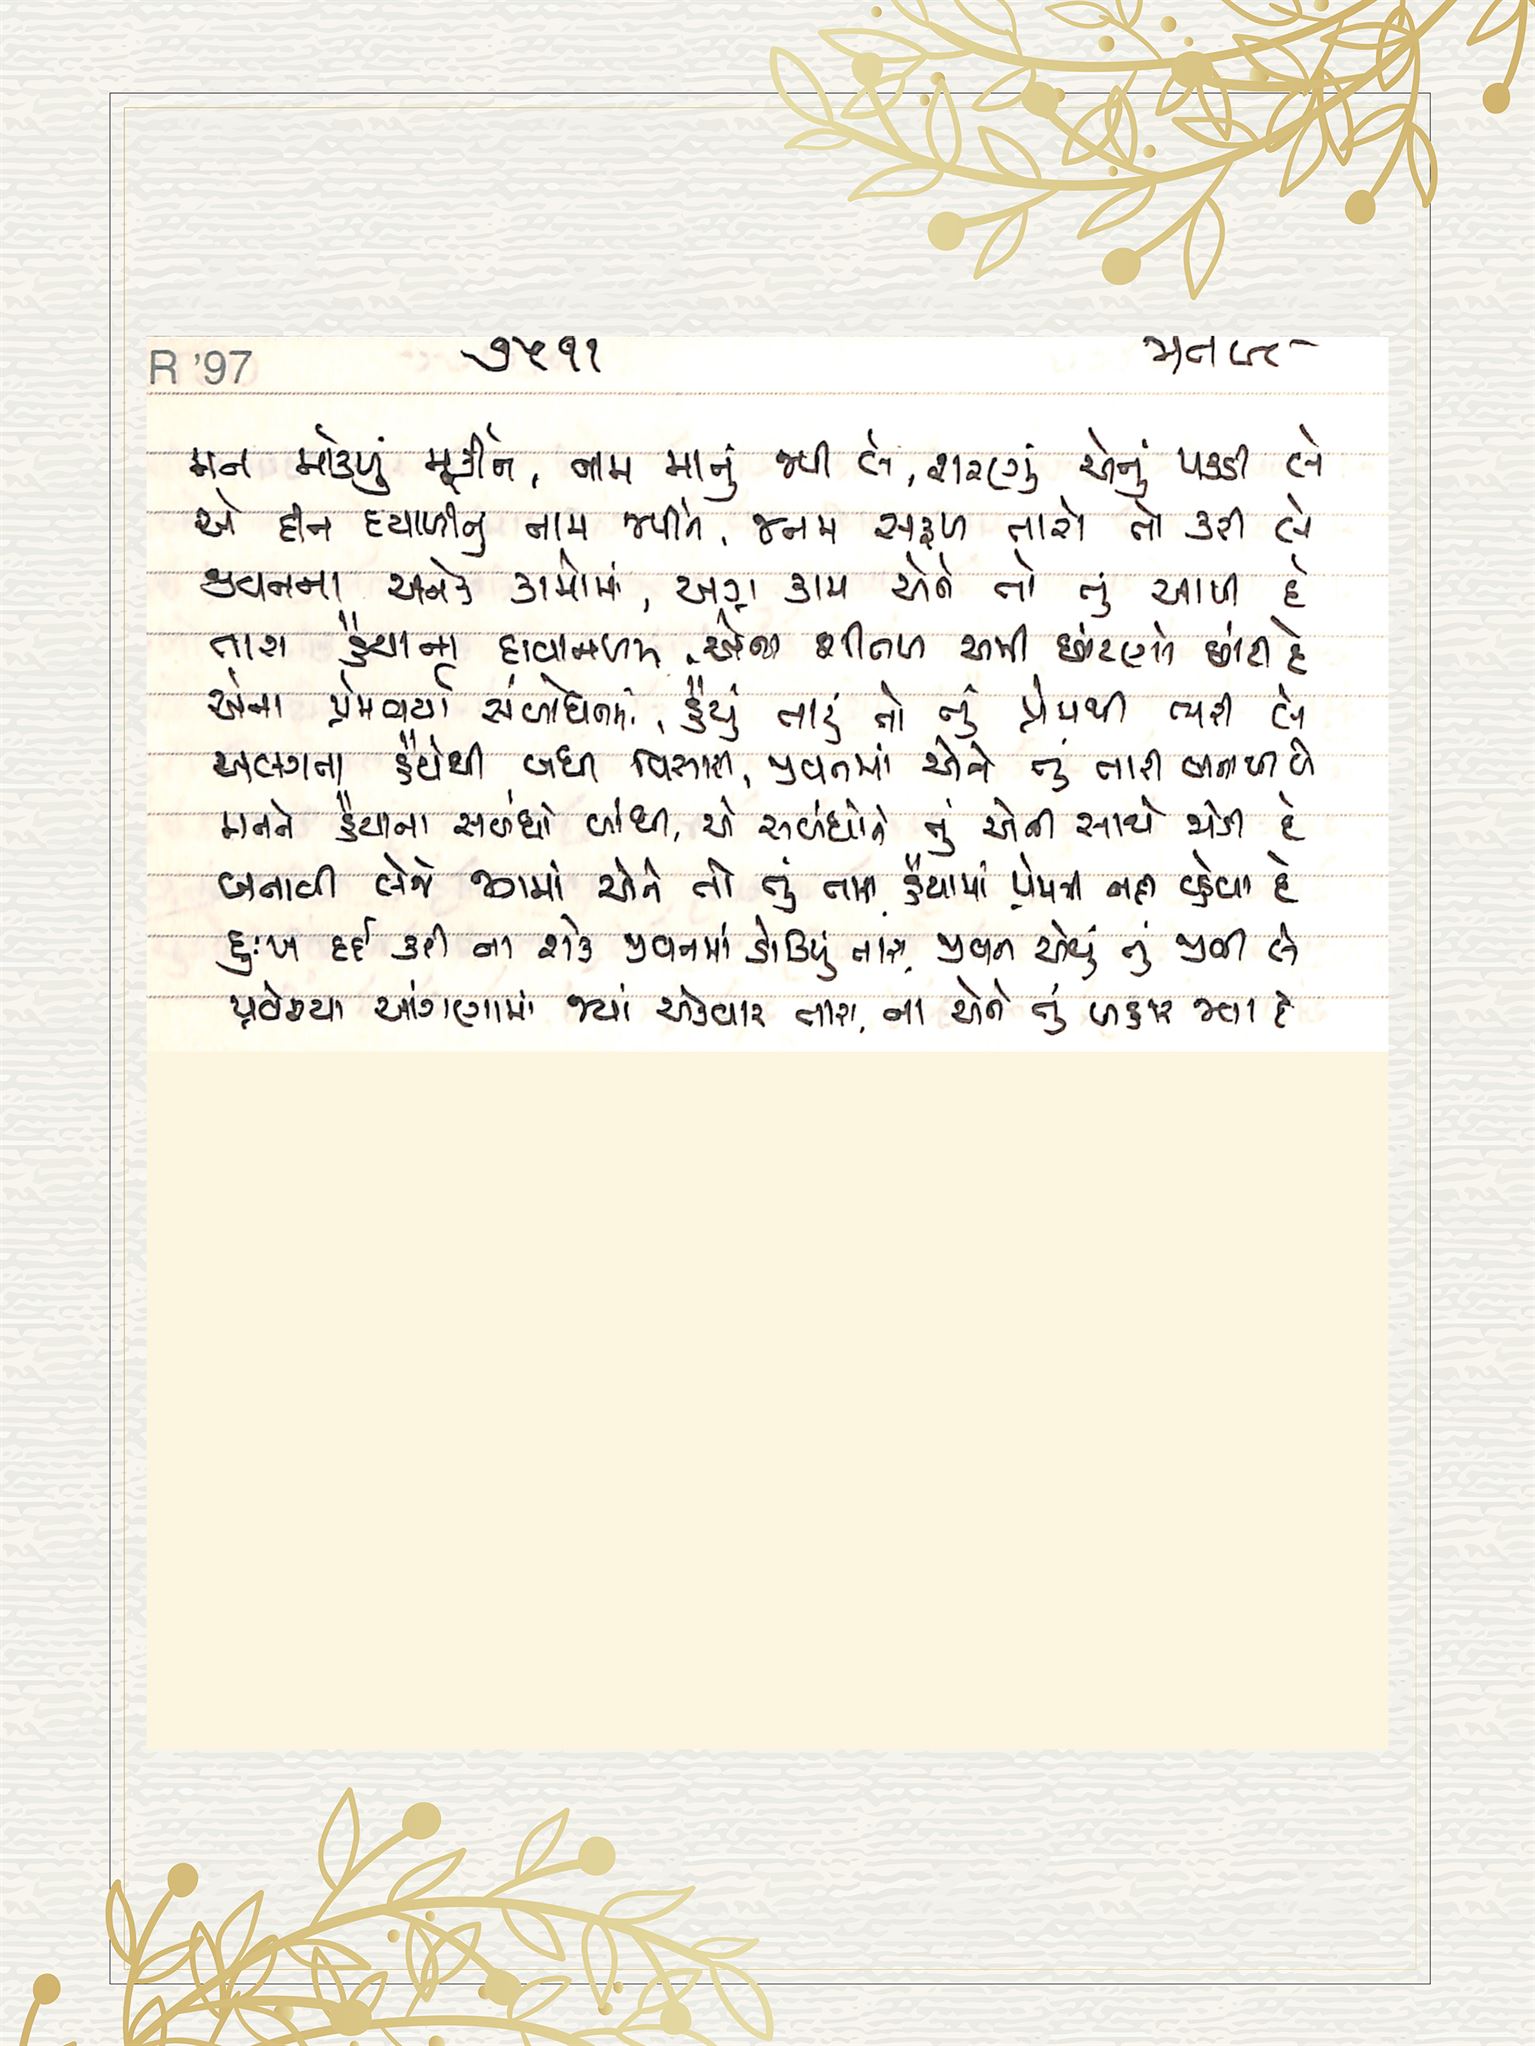 R '97 ૭૫૧૧ મન
મન મોકળું મૂકીને, નામ માનું જપી લે, શરણું એનું પકડી લે
એ દીન દયાળીનું નામ જપીને, જનમ સફળ તારો તો કરી લે
જીવનના અનેક કામોમાં, અગ્ર કામ એને તો તું આપી દે
તારા હૈયાના દાવાનળમાં, એના શીતળ અમી છાંટણાં છાંટી દે
એના પ્રેમભર્યા સંબોધનમાં, હૈયું તારું તો તું પ્રેમથી ભરી લે
અલગતા હૈયેથી બધી વિસારી, જીવનમાં એને તું તારી બનાવી લે
મનને હૈયાના સબંધો બાંધી, એ સબંધોને તું એની સાથે જોડી દે
બનાવી લેજે જગમાં એને તો તું તારા, હૈયામાં પ્રેમના નહીં વ્હેવા દે
દુઃખ દર્દ કરી ના શકે જીવનમાં ડોકિયું તારા, જીવન એવું તું જીવી લે
પ્રવેશ્યા આંગણામાં જ્યાં એકવાર તારા, ના એને તું બહાર જાવા દે